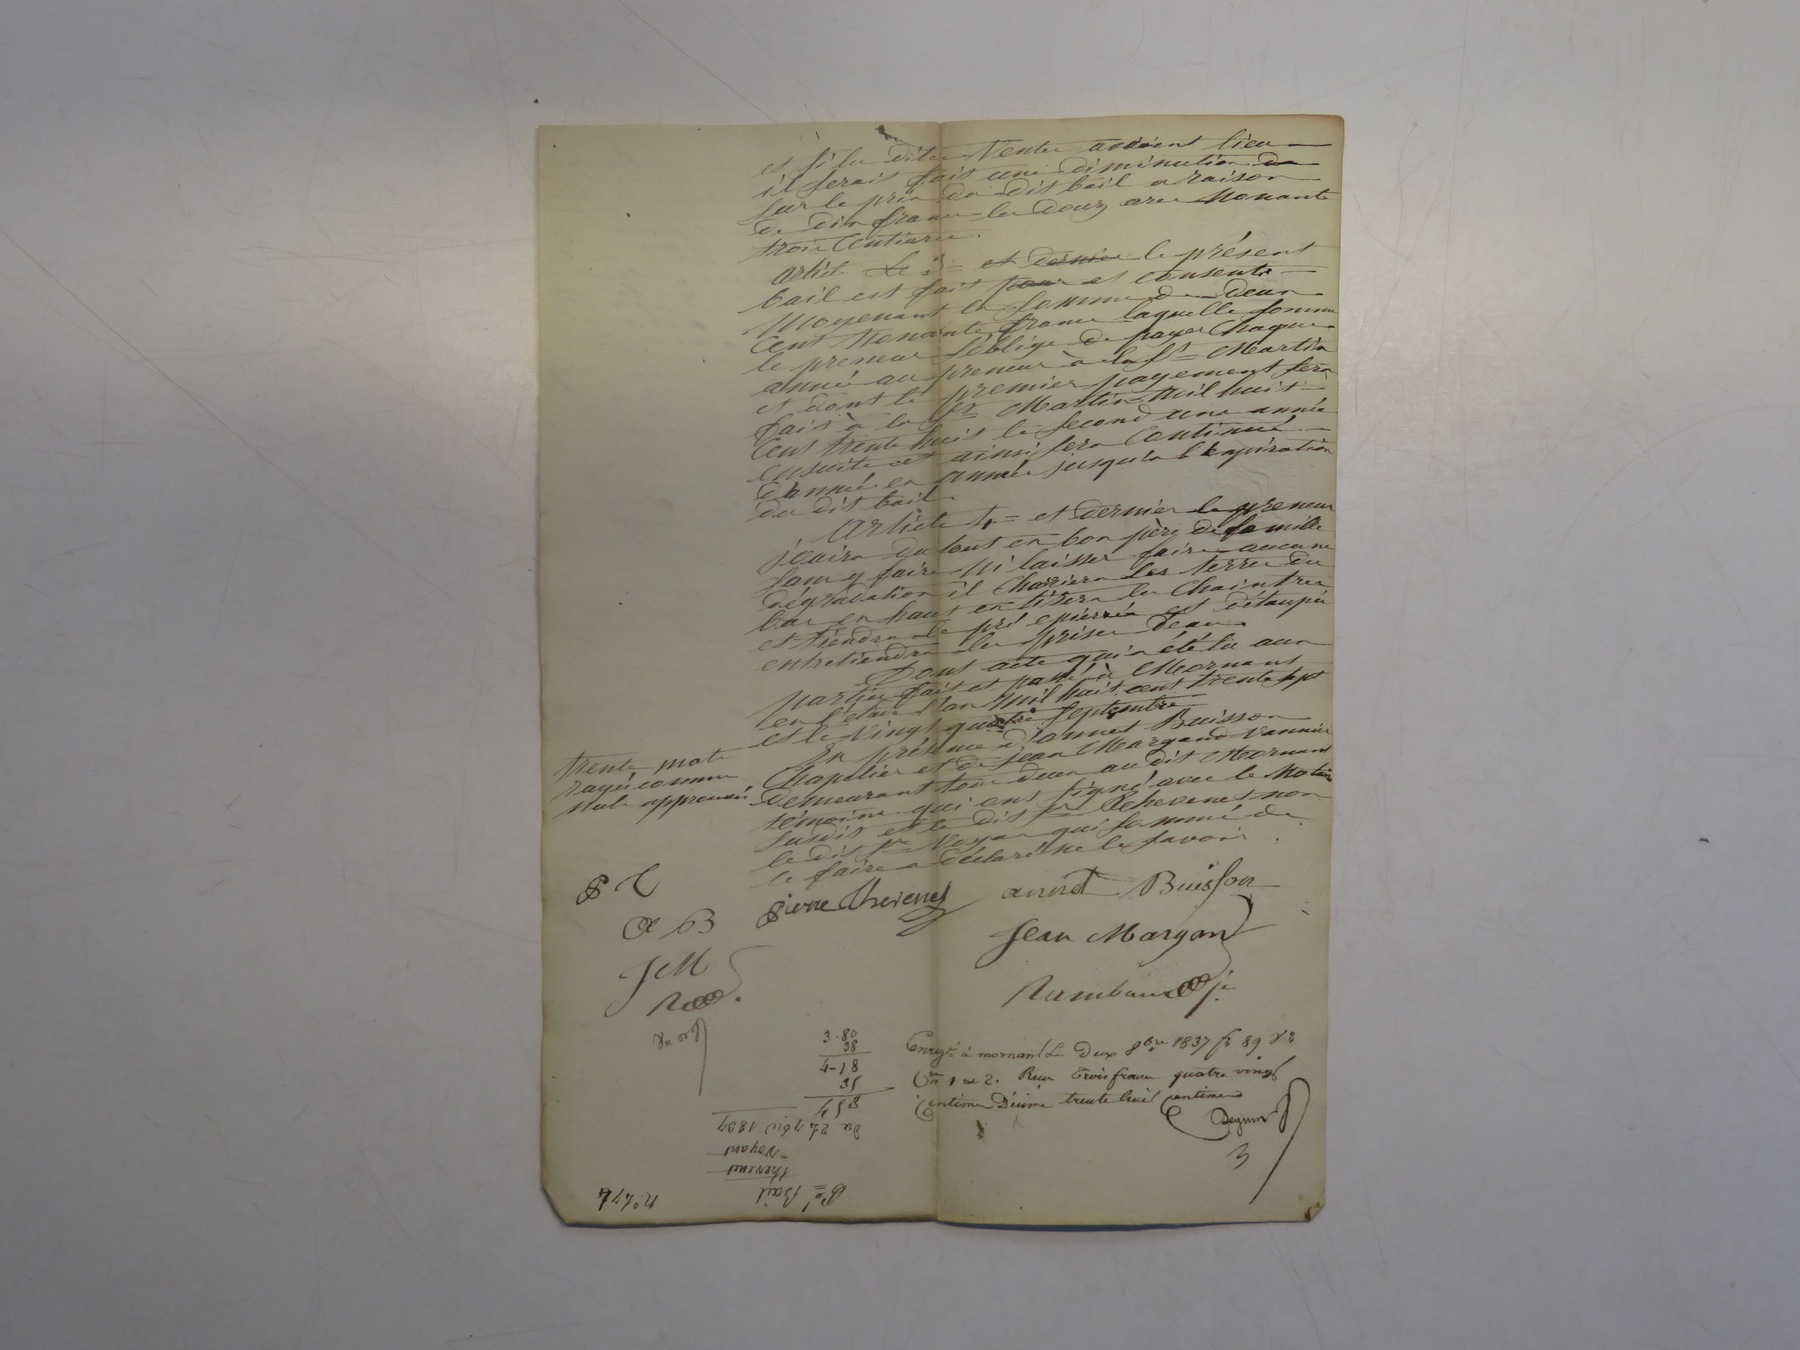 et si la dite Vente avoient lieu
il serait fait une diminution de
sur le prix du dit bail a raison
de dix francs les douze ares Nonante
trois Centiares.
article 3e et dernier le présent
bail est fait pour et consenti
Moyenant la somme de deux
Cent Nonante francs laquelle somme
le preneur s'oblige de payer Chaque
année au preneur à la St Martin
et dont le premier payement sera
fait à la St Martin mil huit
Cent trente huit le second une année
ensuite et ainsi sera Continué
d'année en année jusqu'à l'Expiration
du dit bail.
Article 4e et dernier le preneur
jouira du tout en bon père de famille
sans y faire Ni laisser faire aucune
dégradation il Charriera les terres du
bas en haut en tirera les Chaintres
et tiendra le pré épierré et détaupé
entretiendra les prises d'eau
Dont acte qui a été lu aux
parties fait et passé à Mornant
en l'étude l'an Mil huit cent trente sept
et le vingt quatre Septembre
En présence d'annet Buisson
Chapelier et de Jean Margand Vannier
demeurant tous deux au dit Mornant
témoins qui ont signé avec le Notaire
susdit et le dit sr Thevenet non
le dit sr Noyan qui sommé de
le faire a déclaré ne le savoir
trente mots
rayés comme
Nuls approuvés
P T
a B
J M
R
pierre thevenet
annet Buisson
Jean Margand
Rambaud
3.80
38
4-18
35
4 53
Enregé à mornant le Deux 8bre 1837 fo 89 Ro
Ces 1 et 2. Reçu Trois francs quatre vingt
Centimes Décime trente huit centimes
Du 24 7bre 1837
Noyant
thevenet
Bail
No 474